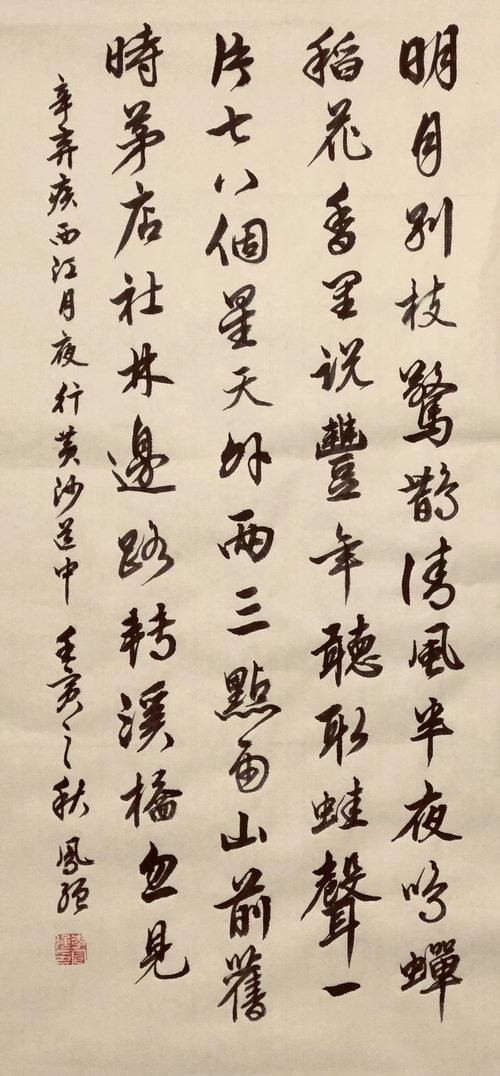 明月別枝驚鵲清風半夜鳴蟬
稻花香里説豐年聽取蛙聲一
片七八個星天外兩三點雨山前舊
時茅店社林邊路轉溪橋忽見
辛弃疾西江月夜行黄沙道中 壬寅之秋 鳳